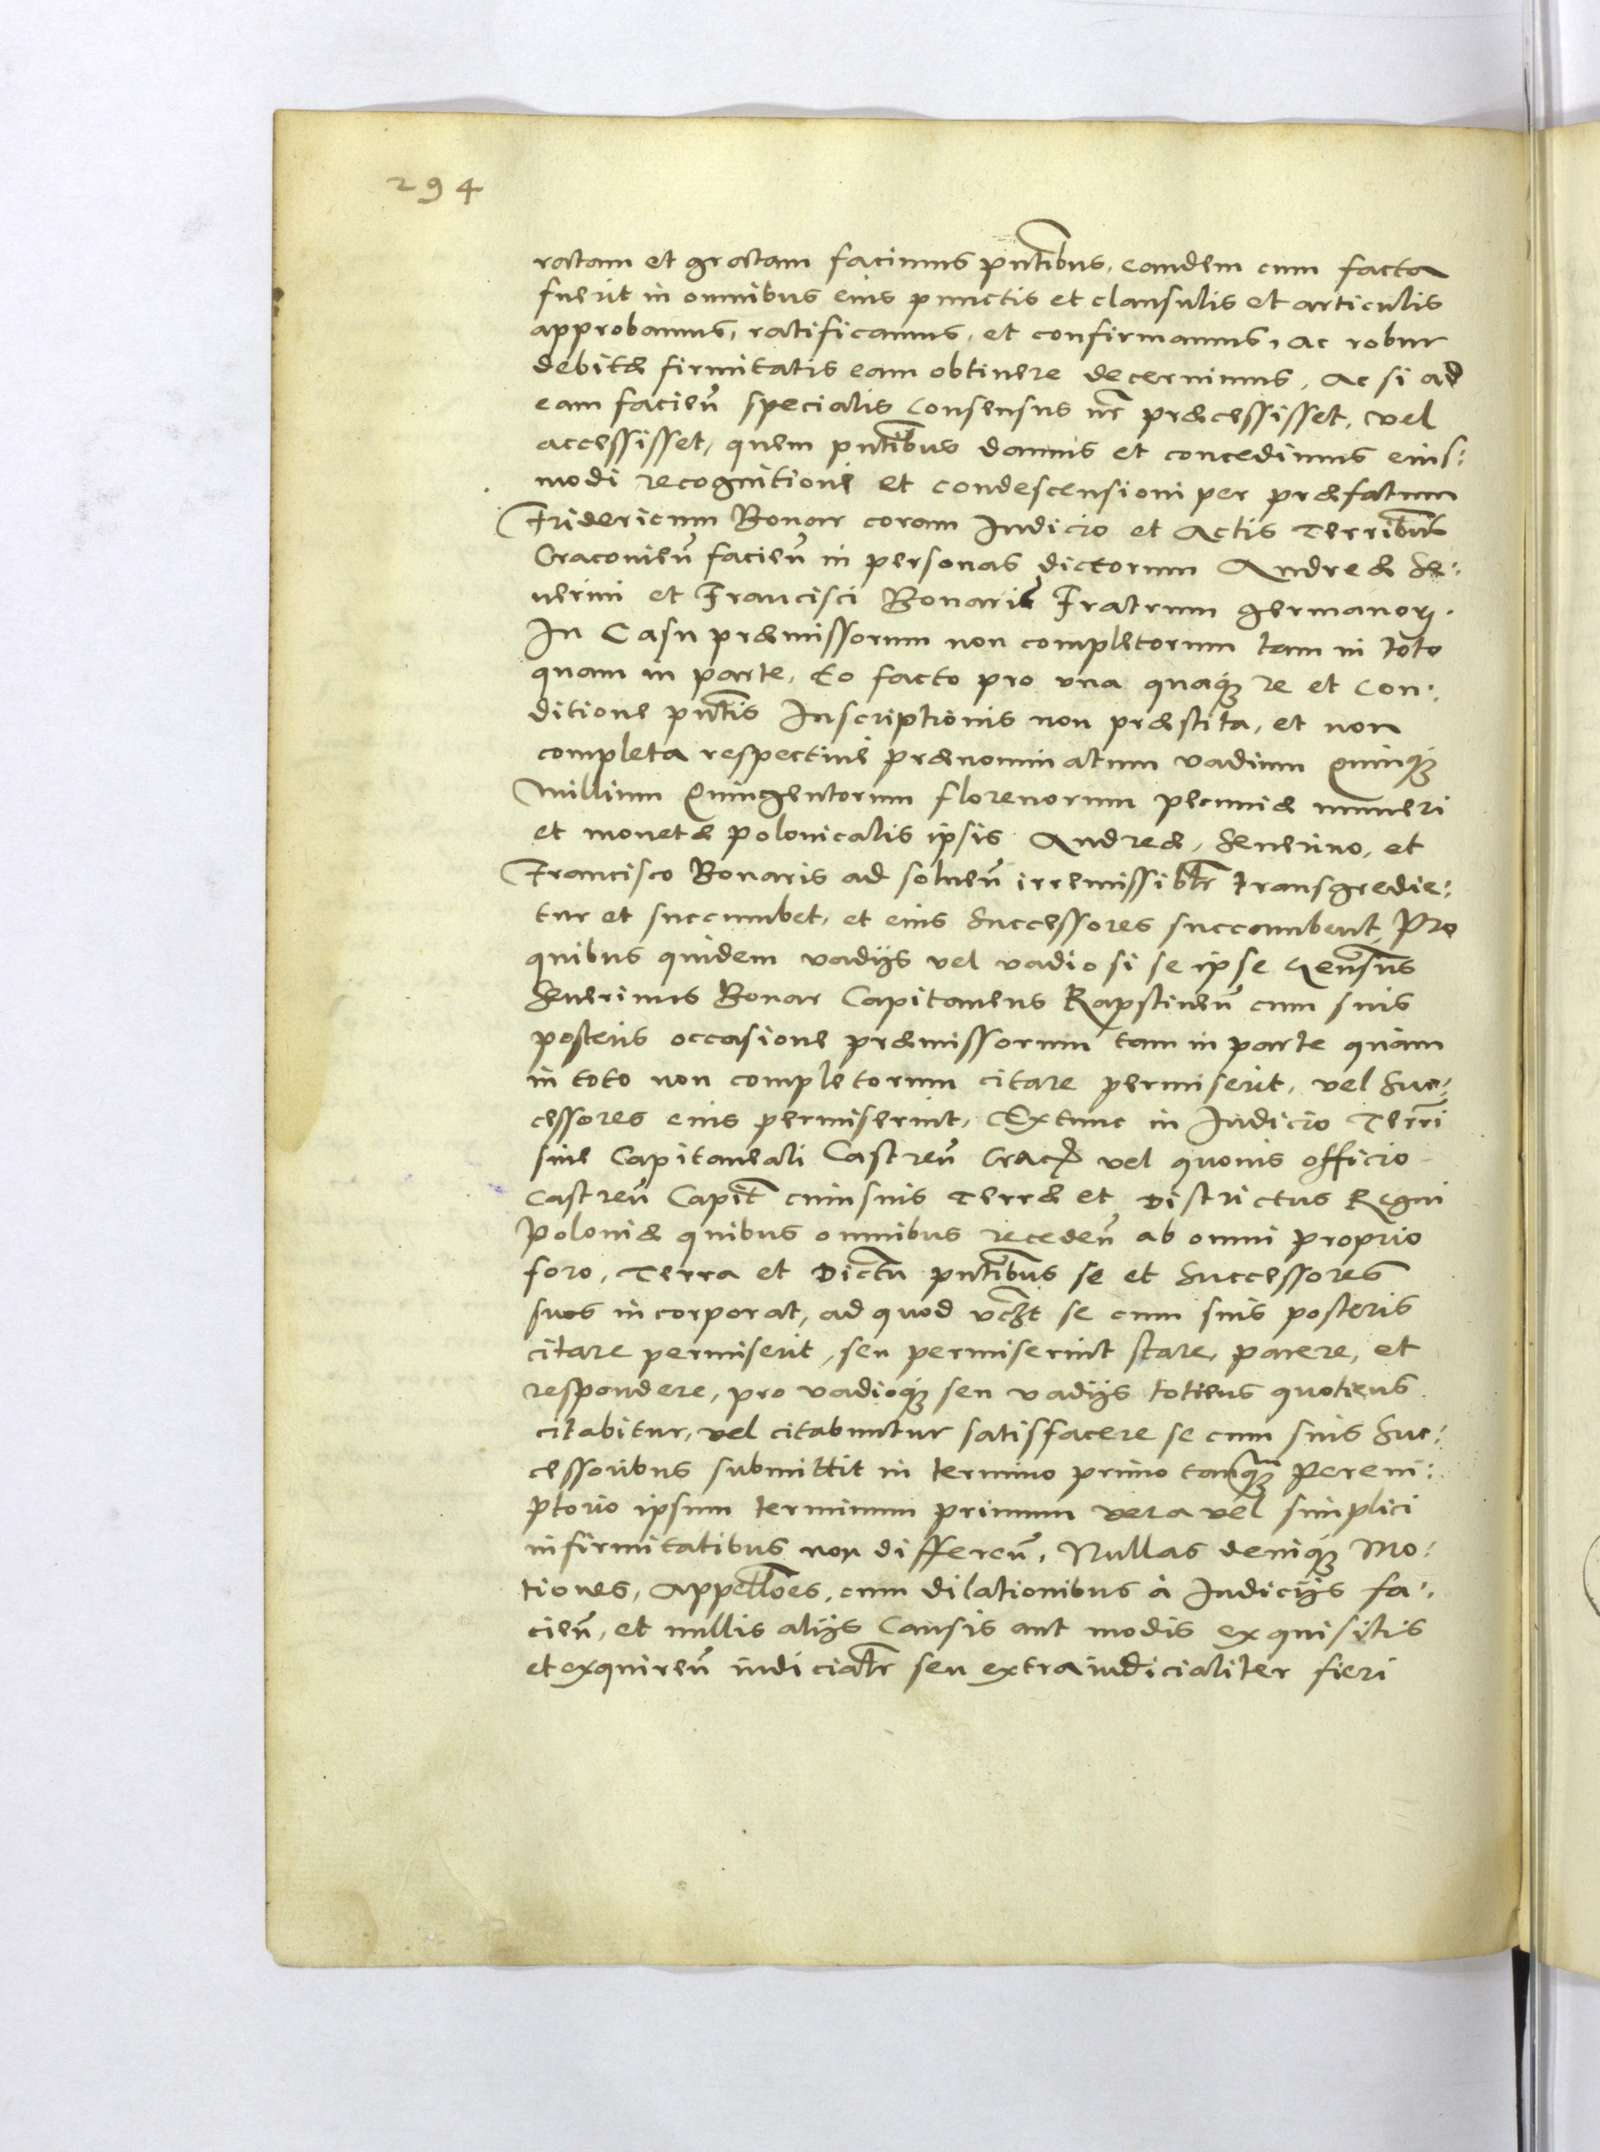 294
ratam et gratam facimus pntibus, eandem cum facta
fuerit in omnibus eius punctis et clausulis et articulis
approbamus, ratificamus, et confirmamus, ac robur
debitæ firmitatis eam obtinere decernimus, Ac si ad
eam facien̄ specialis Consensus nr̄ præcessisset, vel
accessisset, quem pntibus damus et concedimus eius:
modi recognitioni et condescensioni per præfatum
Fridericum Bonar coram Iudicio et Actis Terribus
Cracovien̄ facien̄ in personas dictorum Andreæ Se:
uerini et Francisci Bonaris Fratrum germanorꝝ.
In Casu præmissorum non completorum tam in toto
quam in parte, Eo facto pro una quaqꝫ re et Con:
ditione pntis Inscriptionis non præstita, et non
completa respective prænominatum vadium Quinqꝫ
Millium Quingentorum florenorum pecuniæ numeri
et monetæ polonicalis ipsis Andreæ, Seuerino, et
Francisco Bonaris ad soluen̄ irremissibłr transgredie:
tur et succumbet, et eius Successores succumbent, Pro
quibus quidem vadijs vel vadio si se ipse
Seuerinus Bonar Capitaneus Rapstinen̄ cum suis
posteris occasione præmissorum tam in parte quàm
in toto non completorum citare permiserit, vel Suc:
cessores eius permiserint, Extunc in Iudicio Terrī
siue Capitaneali Castren̄ Crac̄ vel quouis officio
Castren̄ Capit̄ cuiusuis Terræ et Districtus Regni
Poloniæ quibus omnibus receden̄ ab omni proprio
foro, Terra et Dictu pntibus se et Successores
suos incorporat, ad quod vczt se cum suis posteris
citare permiserit, seu permiserint stare, parere, et
respondere, pro vadioqꝫ seu vadijs totiens quotiens
citabitur, vel citabuntur satisfacere se cum suis Suc:
cessoribus submittit in termino primo tanqꝫ Perem:
ptorio ipsum terminum primum vera vel simplici
infirmitatibus non differen̄, Nullas deniqꝫ Mo:
tiones, Appellōes, cum dilationibus à Iudicijs fa:
cien̄, et nullis alijs Causis aut modis exquisitis
et exquiren̄ iudiciałr seu extraiudicialiter fieri